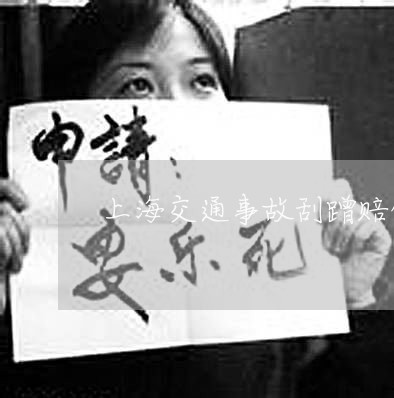 申請：
上海交通事故刮蹭赔
要乐死